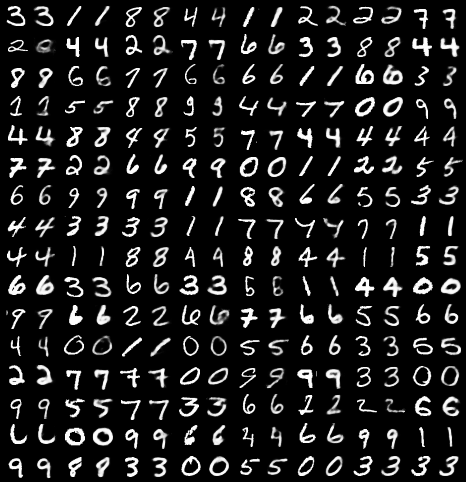 3 3 1 1 8 8 4 4 1 1 2 2 2 2 7 7
2 4 4 2 2 7 7 6 6 3 3 8 8 4 4
8 8 6 6 7 7 6 6 6 6 1 1 6 6 3 3
1 1 5 5 8 8 9 9 4 4 7 7 0 0 9 9
4 4 8 8 4 4 5 5 7 7 4 4 4 4 4 4
7 7 2 2 6 6 9 9 0 0 1 1 2 2 5 5
6 6 9 9 9 9 1 1 8 8 6 6 5 5 3 3
4 4 3 3 3 3 1 1 7 7 4 4 7 7 1 1
4 4 1 1 8 8 4 4 8 8 4 4 1 1 5 5
6 6 3 3 6 6 3 3 5 1 1 4 4 0 0
9 9 6 6 2 2 6 6 7 7 6 6 5 5 6 6
4 4 0 0 1 1 0 0 5 5 6 6 3 3 5 5
2 2 7 7 7 7 0 0 9 9 9 9 3 3 0 0
9 9 5 5 7 7 3 3 6 6 2 2 2 2 6 6
6 6 0 0 9 9 6 6 4 4 6 6 9 9 1 1
9 9 8 8 3 3 0 0 5 5 0 0 3 3 3 3